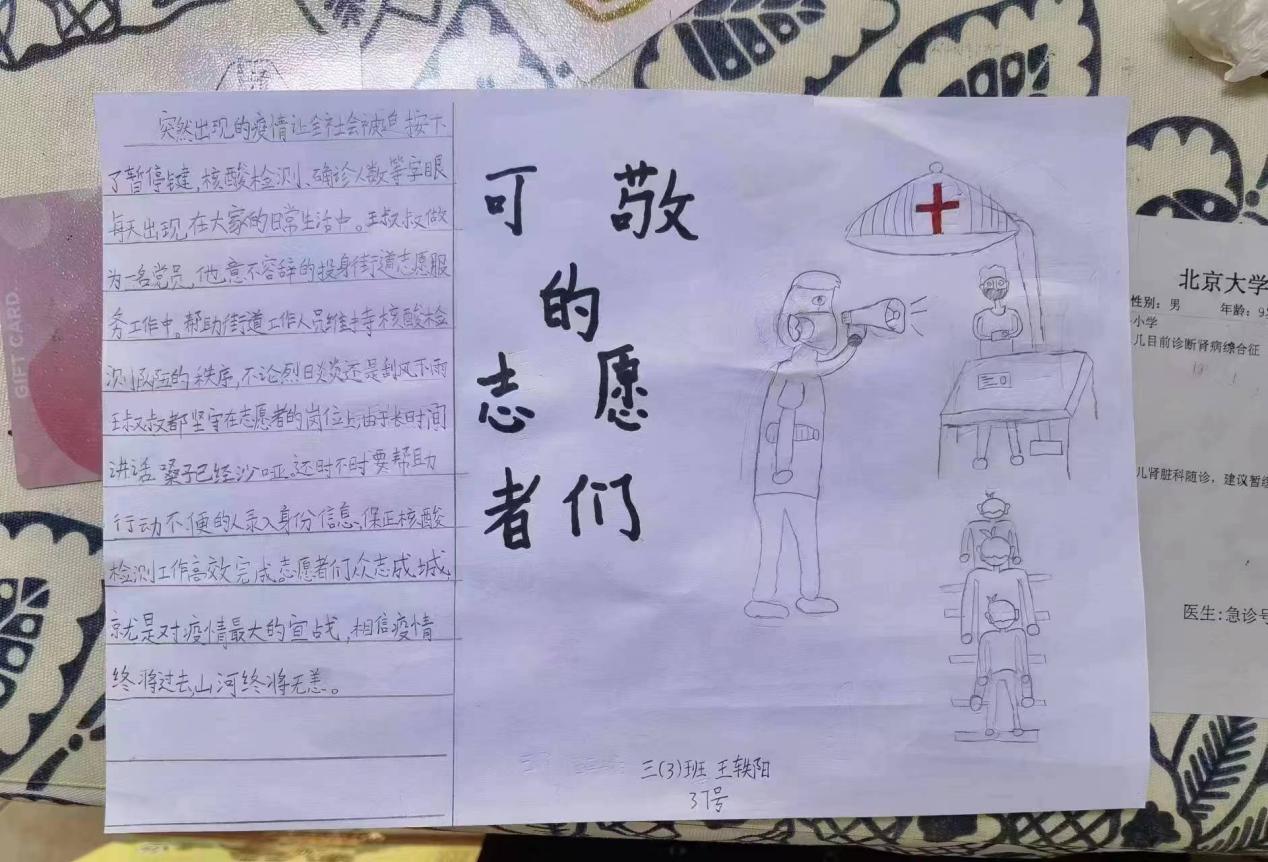 突然出现的疫情让全社会被迫按下
了暂停键,核酸检测、确诊人数等字眼
每天出现在大家的日常生活中。王叔叔做
为一名党员,他意不容辞的投身街道志愿服
务工作中。帮助街道工作人员维持寺核酸检
测队伍的秩序,不论烈日炎炎还是刮风下雨
王叔叔都坚守在志愿者的岗位上,由于长时间
讲话,嗓子已经沙哑,还时不时要帮助
行动不便的人录入身份信息,保正核酸
检测工作高效完成,志愿者们众志成城,
就是对疫情最大的宣战,相信疫情
终将过去,山河终将无恙。
可敬
的
志愿
者们
三(3)班 王轶阳
37号
GIFT CARD
北京大学
性别:男 年龄:9岁
小学
儿目前诊断肾病综合征
儿肾脏科随诊,建议暂缓
医生:急诊号